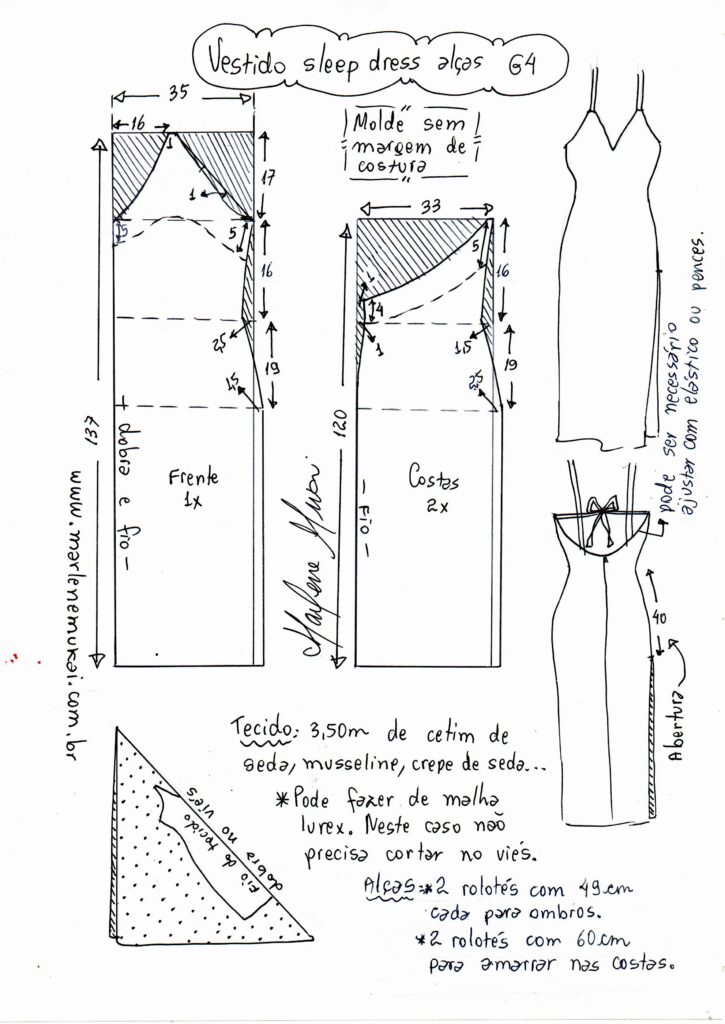 Vestido sleep dress alças G4
35
16
1
17
1
5
5
16
2,5
19
2,5
137
+ dobra e fio -
Frente
1x
www.marlenemukai.com.br
Molde sem
margem de
costura
33
5
1
4
16
1
1,5
19
2,5
120
- Fio -
Costas
2x
Marlene Mukai
pode ser necessário
ajustar com elástico ou pences.
40
Abertura
dobra no viés
Fio do tecido
Tecido: 3,50m de cetim de
seda, musseline, crepe de seda...
*Pode fazer de malha
lurex. Neste caso não
precisa cortar no viés.
Alças:*2 rolotés com 49cm
cada para ombros.
*2 rolotés com 60cm
para amarrar nas costas.